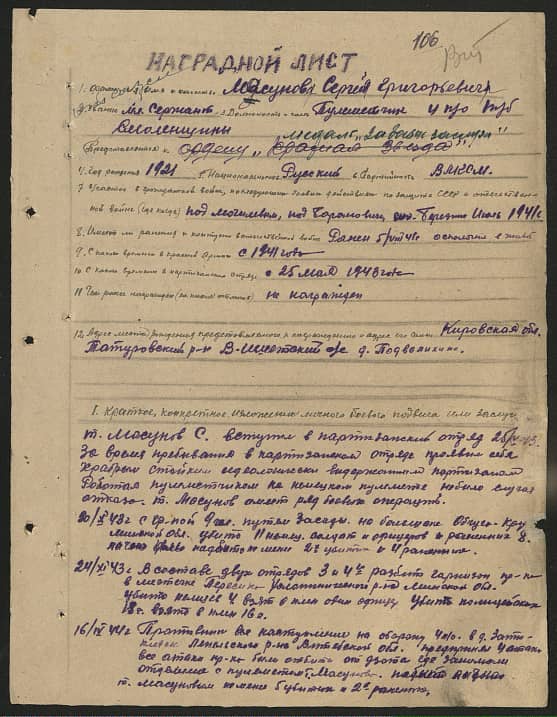 106
НАГРАДНОЙ ЛИСТ
1. Фамилия, имя и отчество Масунов Сергей Григорьевич
2. Звание мл. Сержант 3. Должность и часть Пулеметчик 4 п/о
Смоленщины медаль "За боевые заслуги"
Представляется к ордену "Красная Звезда"
4. Год рождения 1921 5. Национальность Русский 6. Партийность ВЛКСМ.
7. Участие в гражданской войне, последующих боевых действиях по защите СССР и отечествен-
ной войне (где когда) под Могилевом, под Березино Июль 1941 г.
8. Имеет ли ранения и контузии в отечественной войне Ранен 5/VIII 41 г осколком в живот
9. С какого времени в Красной Армии с 1941 года
10. С какого времени в партизанском отряде с 25 мая 1943 года
11. Чем ранее награжден (за какие отличия) не награжден
12. Адрес места рождения представляемого к награждению и адрес его семьи Кировская обл.
Татуровский р-н с/с д. Подволихино.
I. Краткое, конкретное изложение личного боевого подвига или заслуг
т. Масунов С. вступил в партизанский отряд
За время пребывания в партизанском отряде проявил себя
храбрым стойким идеологически выдержанным партизаном
Работая пулеметчиком на немецком пулемете не было случая
отказа. т. Масунов имеет ряд боевых операций.
20/XI 43 г с гр-пой 9 чел. путем засады. на большаке
Минской обл. убито 11 немец. солдат и офицеров и раненных 8.
2х убитых и 4 раненных.
24/XI 43 г В составе двух отрядов 3 и 4го разбит гарнизон пр-ка
в местечке р-на Минской обл.
убито немцев 4 взят в плен один офицер убито полицейских
18 г. взято в плен 16 г.
16/IV 44 г Противник вел наступление на оборону 4 п/о. в д.
Лепельского р-на Витебской обл. предпринял 4 атаки
все атаки пр-ка были отбиты от дзота где занимали
отделение с пулеметчик. Масунов.
т. Масуновым не менее убитых и 2х раненых,